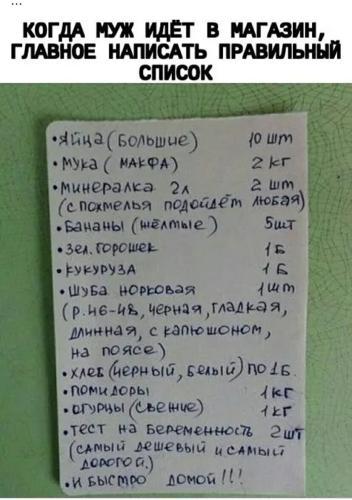 ...
КОГДА МУЖ ИДЁТ В МАГАЗИН,
ГЛАВНОЕ НАПИСАТЬ ПРАВИЛЬНЫЙ
СПИСОК
• Яйца (Большие) 10 шт
• Мука (МАКФА) 2 кг
• Минералка 2л 2 шт
(с похмелья подойдёт любая)
• Бананы (жёлтые) 5шт
• Зел. горошек 1 Б
• Кукуруза 1 Б
• Шуба норковая 1 шт
(р.46-48, чёрная, гладкая,
длинная, с капюшоном,
на поясе)
• хлеб (чёрный, белый) по 1Б.
• помидоры 1 кг
• огурцы (свежие) 1 кг
• тест на беременность 2 шт
(самый дешевый и самый
дорогой.)
• И быстро домой!!!